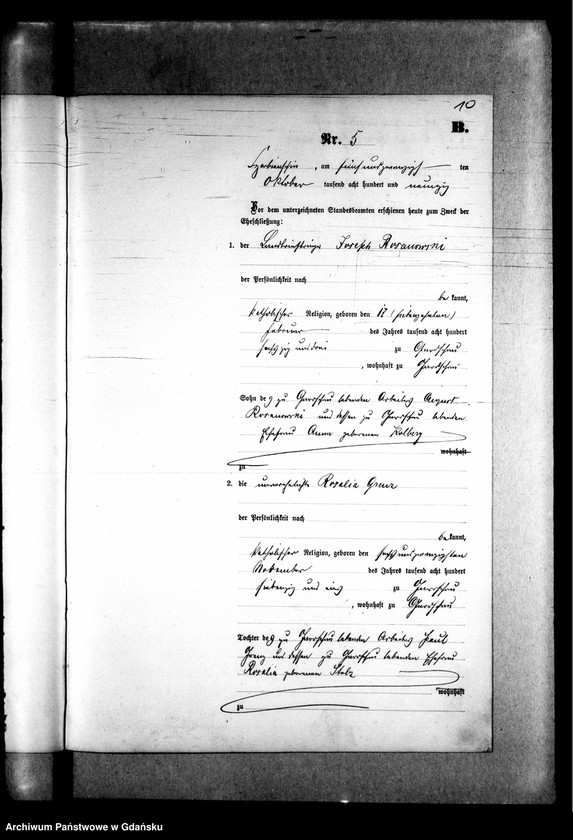 10
B.
Nr. 5
, am fünf und zwanzigsten
Oktober tausend acht hundert und neunzig
Vor dem unterzeichneten Standesbeamten erschienen heute zum Zweck der
Eheschließung:
1. der Joseph Rosanowski
der Persönlichkeit nach
be kannt,
katholischer Religion, geboren den 17 (siebenzehnten)
Februar des Jahres tausend acht hundert
sechszig und drei zu
, wohnhaft zu
Sohn des zu lebenden Arbeiters August
Rosanowski und dessen zu lebenden
Ehefrau Anna geborenen Kolberg
wohnhaft
zu
2. die unverehelichte Rosalia Grenz
der Persönlichkeit nach
be kannt,
katholischer Religion, geboren den sechs und zwanzigsten
November des Jahres tausend acht hundert
siebenzig und eins zu
, wohnhaft zu
Tochter des zu lebenden Arbeiters Paul
Grenz und dessen zu lebenden Ehefrau
Rosalia geborenen Stolz
wohnhaft
zu
Archiwum Państwowe w Gdańsku